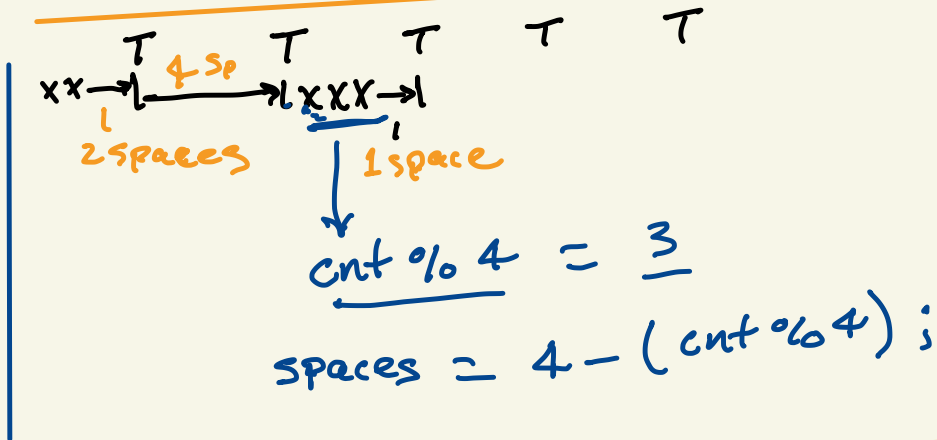 T T T T T
4 sp
xx→| → | xxx→|
2 spaces 1 space
cnt % 4 = 3
spaces = 4 - (cnt % 4) ;